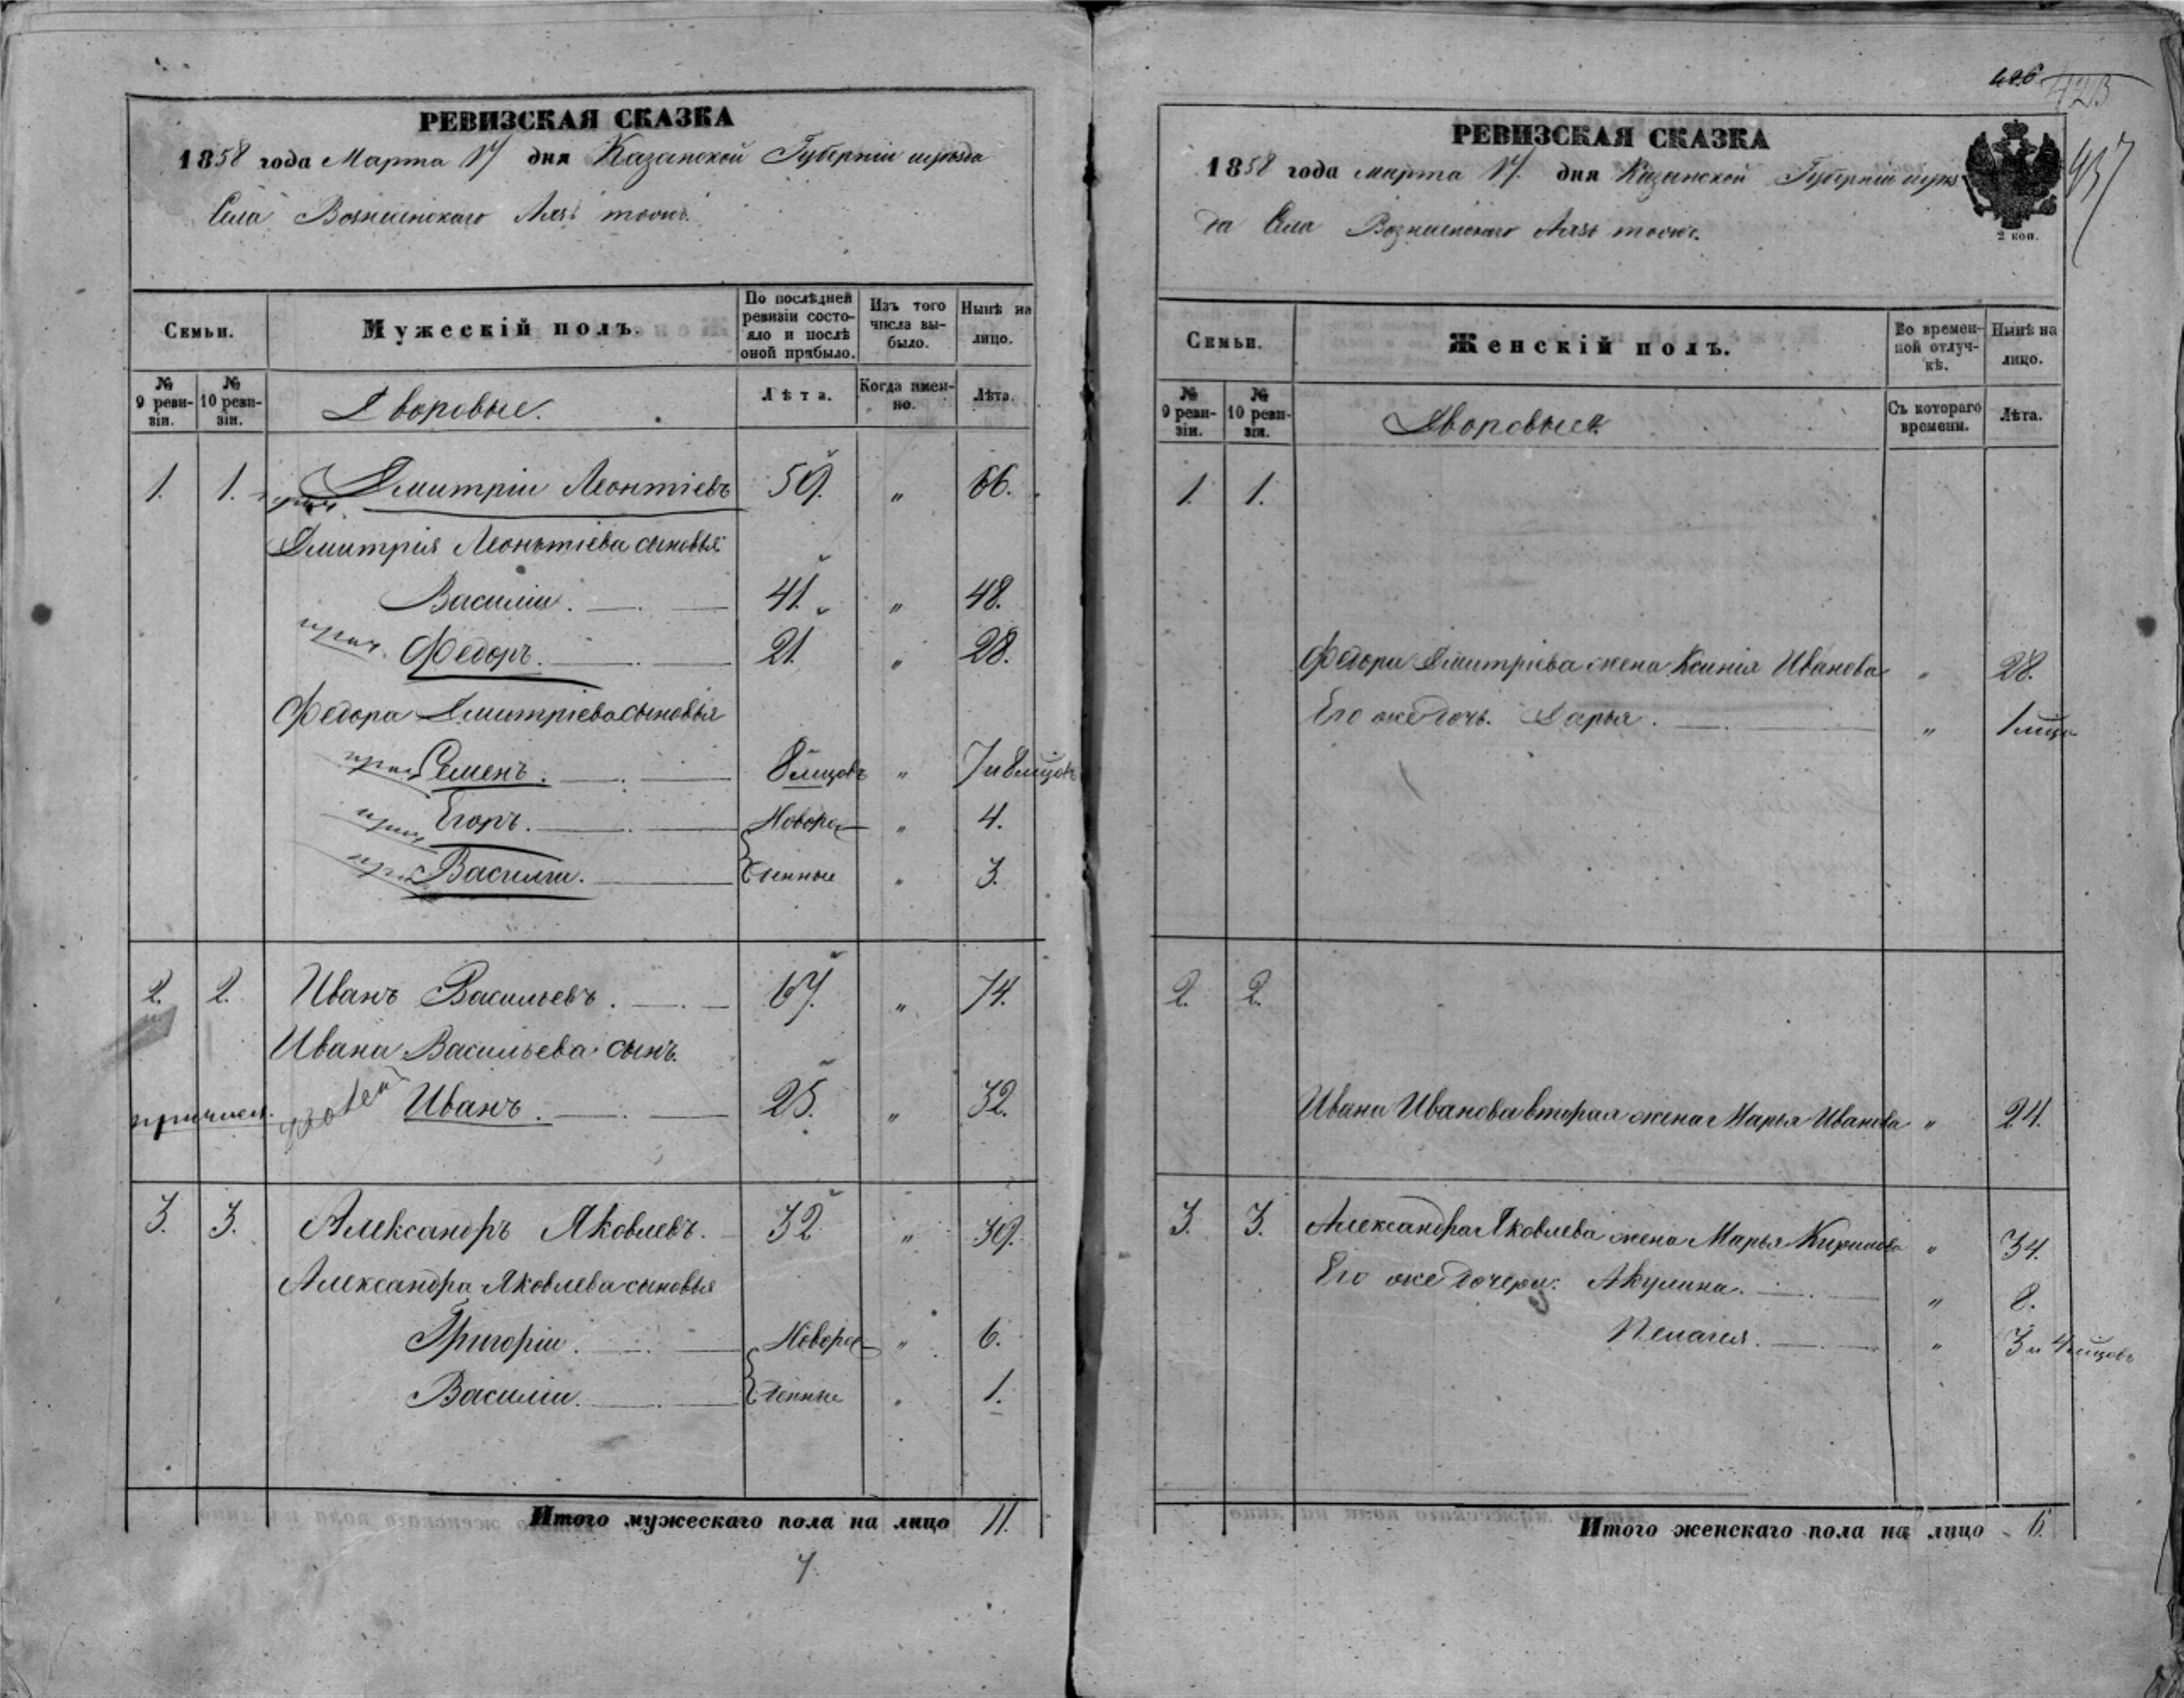 РЕВИЗСКАЯ СКАЗКА
1858 года Марта 17 дня Казанской Губерніи уѣзда
Села Вознесенскаго тожъ.
Семьи.
Мужескій полъ.
По послѣдней ревизіи состояло и послѣ оной прибыло.
Изъ того числа выбыло.
Нынѣ на лицо.
№ 9 ревизіи.
№ 10 ревизіи.
Дворовые.
Лѣта.
Когда именно.
Лѣта.
1. 1. Дмитріи Леонтіевъ 59. " 66.
Дмитрія Леонтіева сыновья
Василіи. 41. " 48.
прич. Федоръ. 21. " 28.
Федора Дмитріева сыновья
прич Семенъ. 8 мѣцовъ " 7 и 8 мѣцовъ
прич Егоръ. Новоро- " 4.
прич Василіи. жденные " 3.
2. 2. Иванъ Васильевъ. 67. " 74.
Ивана Васильева сынъ.
причисл. Иванъ. 25. " 32.
3. 3. Александръ Яковлевъ. 32 " 39.
Александра Яковлева сыновья
Григоріи. Новоро- " 6.
Василіи. жденные " 1.
Итого мужескаго пола на лицо 11.
426
423
437
РЕВИЗСКАЯ СКАЗКА
1858 года марта 17. дня Казанской Губерніи уѣз
да Села Вознесенскаго тожъ.
2 коп.
Семьи.
Женскій полъ.
Во временной отлучкѣ.
Нынѣ на лицо.
№ 9 ревизіи.
№ 10 ревизіи.
Дворовые.
Съ котораго времени.
Лѣта.
1. 1.
Федора Дмитріева жена Ксенія Иванова " 28.
Его же дочь. Дарья. " 1 мѣца
2. 2.
Ивана Иванова вторая жена Марья Иванова " 24.
3. 3. Александра Яковлева жена Марья Кирилова " 34.
Его же дочери: Акулина. " 8.
Пелагея. " 3 и 4 мѣцовъ
Итого женскаго пола на лицо 6.